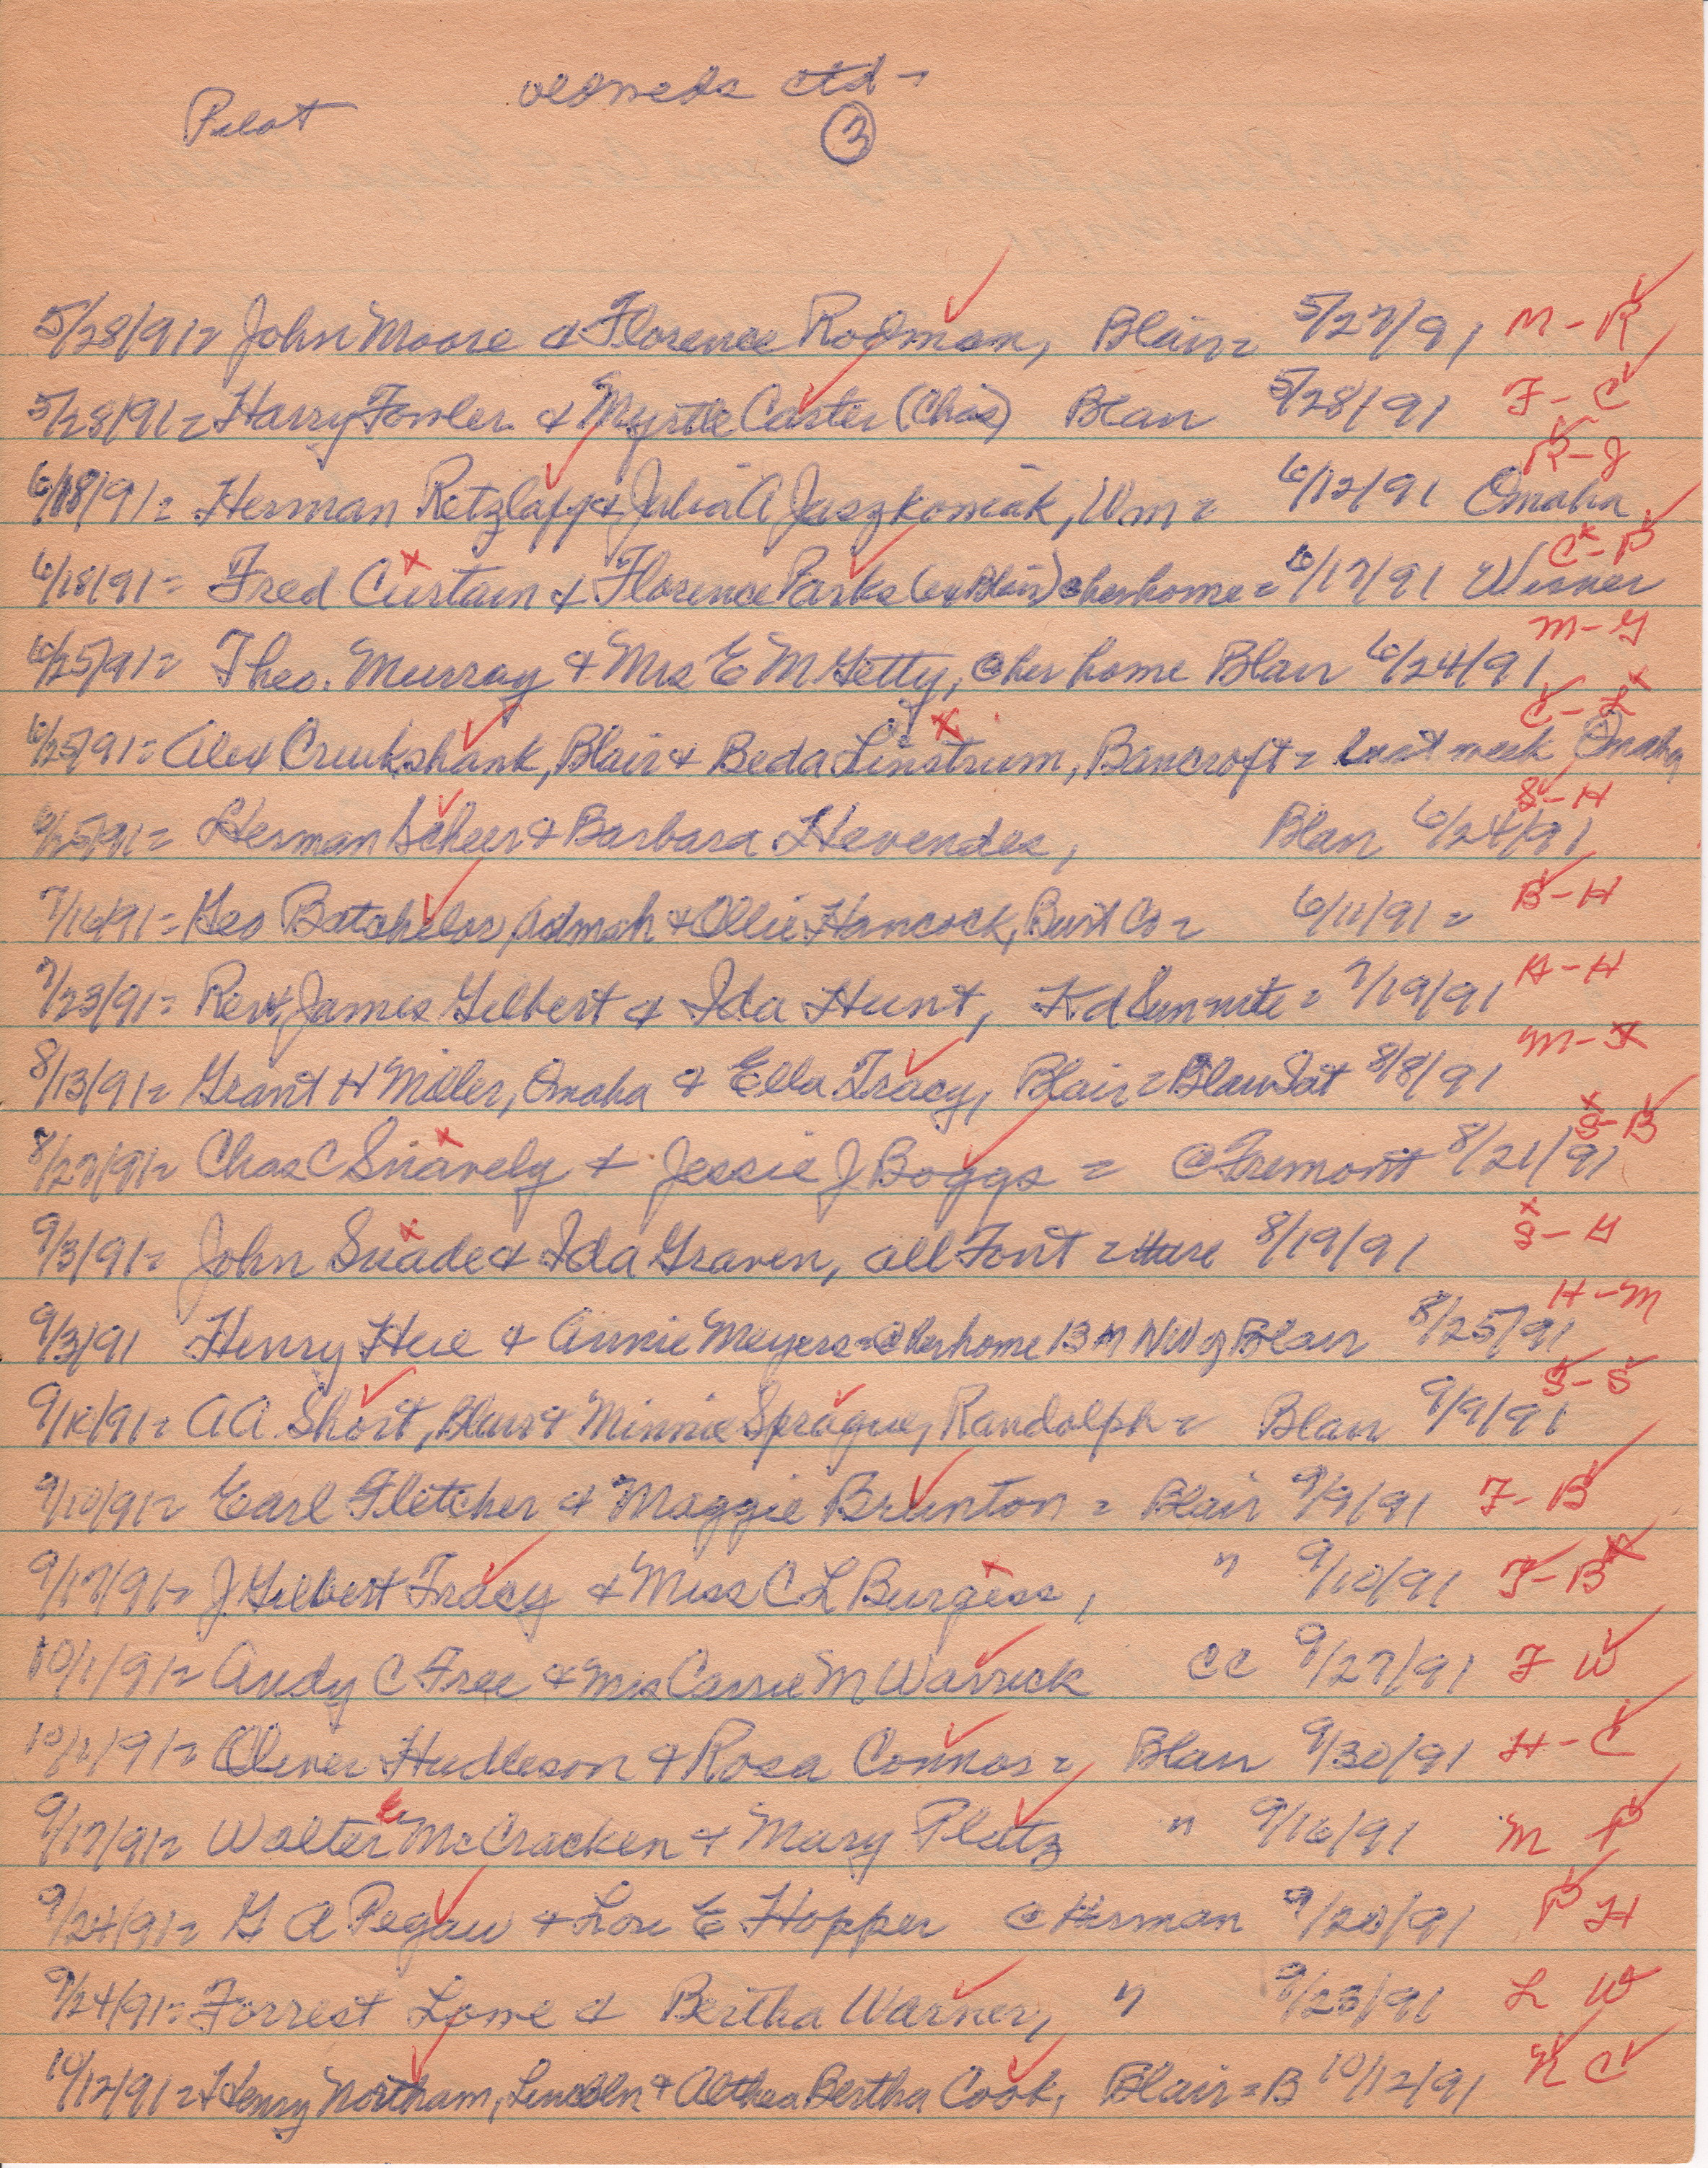 Pilot
weds ctd -
3
5/28/91= John Moore & Florence Rodman, Blair= 5/27/91 M - R
5/28/91= Harry Fowler & Myrtle Carter (Chas) Blair 5/28/91 F - C
R - J
6/18/91= Herman Retzlaff & Julia A Jaszkoniak, Wm = 6/12/91 Omaha
C - P
6/18/91= Fred Curtain & Florence Parks (ex Blair) @ her home = 6/17/91 Wisner
M - G
6/25/91= Theo. Murray & Mrs E M Getty, @ her home Blair 6/24/91
C - L
6/25/91= Alex Cruikshank, Blair & Beda Linstrum, Bancroft = last week Omaha
S - H
6/25/91= Herman Scheer & Barbara Hevendes, Blair 6/24/91
7/16/91= Geo Batchelor, Admah & Ollie Hancock, Burt Co = 6/11/91 = B - H
7/23/91= Rev James Gilbert & Ida Hunt, Kd Summite = 7/19/91 H - H
8/13/91= Grant H Miller, Omaha & Ella Tracy, Blair = Blair Sat 8/8/91 M - T
S - B
8/27/91= Chas C Snavely & Jessie J Boggs = @ Fremont 8/21/91
9/3/91= John Suade & Ida Graven, all Font = 8/19/91 S - G
H - M
9/3/91 Henry Hue & Annie Meyers = @ her home 13 M NW of Blair 8/25/91
S - S
9/10/91= A A. Short, Blair & Minnie Sprague, Randolph = Blair 9/9/91
9/10/91= Earl Fletcher & Maggie Brunton = Blair 9/9/91 F - B
9/17/91= J. Gilbert Tracy & Miss C L Burgess, " 9/10/91 T - B
10/1/91= Andy C Free & Mrs Carrie M Warrick CC 9/27/91 F W
10/1/91= Oliver Hudleson & Rosa Connor = Blair 9/30/91 H - C
9/17/91= Walter McCracken & Mary Platz " 9/16/91 M P
9/24/91= G A Pegau & Lou E Hopper @ Herman 9/20/91 P H
9/24/91= Forrest Lowe & Bertha Warner, " 9/23/91 L W
10/12/91= Henry Northam, Lincoln & Althea Bertha Cook, Blair = B 10/12/91 N C